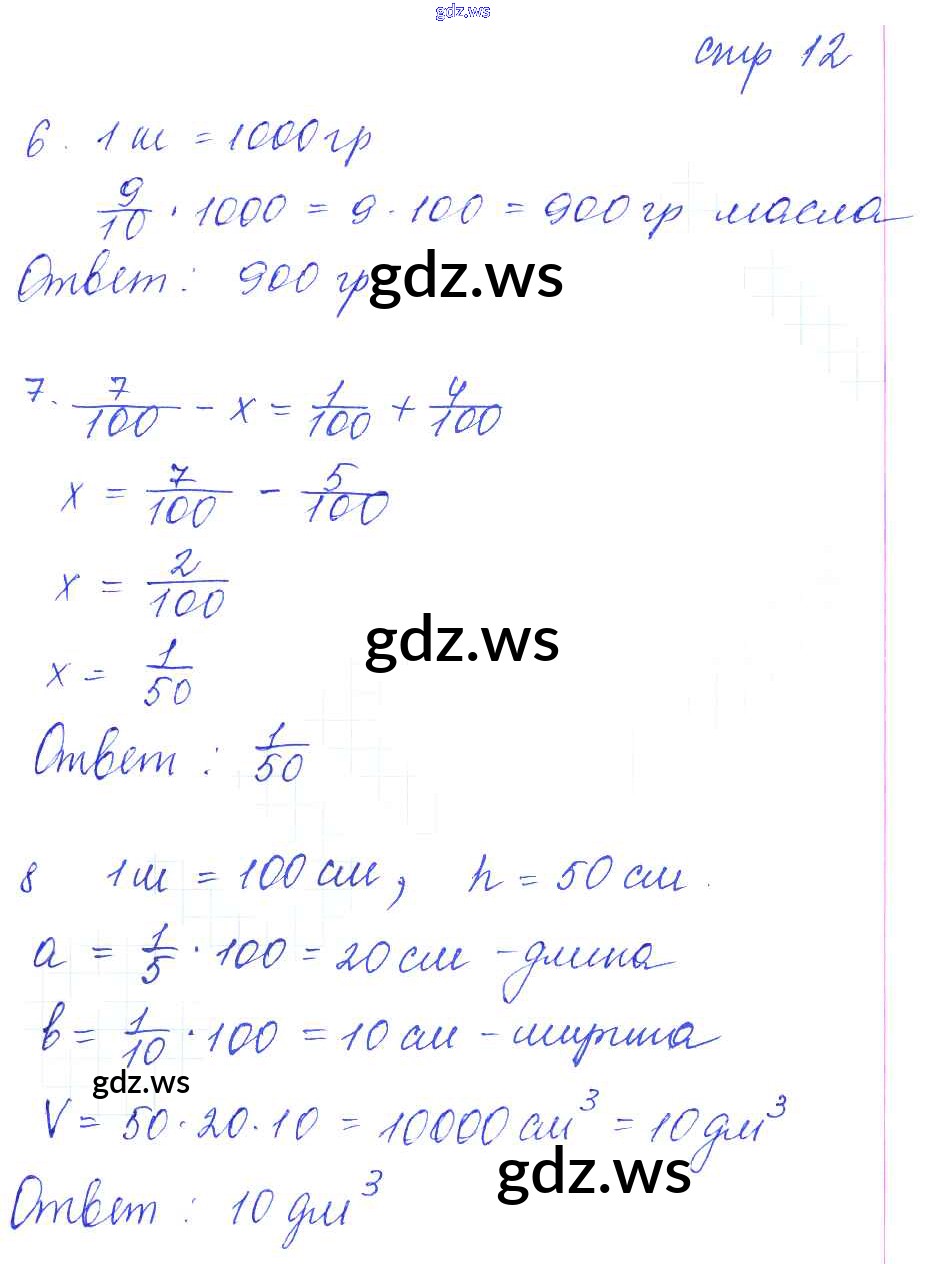 gdz.ws
стр 12
6. 1 ш = 1000 гр
9/10 · 1000 = 9 · 100 = 900 гр масла
Ответ: 900 гр
gdz.ws
7. 7/100 - x = 1/100 + 4/100
x = 7/100 - 5/100
x = 2/100
gdz.ws
x = 1/50
Ответ: 1/50
8 1 м = 100 см, h = 50 см.
a = 1/5 · 100 = 20 см - длина
в = 1/10 · 100 = 10 см - ширина
gdz.ws
V = 50 · 20 · 10 = 10000 см³ = 10 дм³
gdz.ws
Ответ: 10 дм³